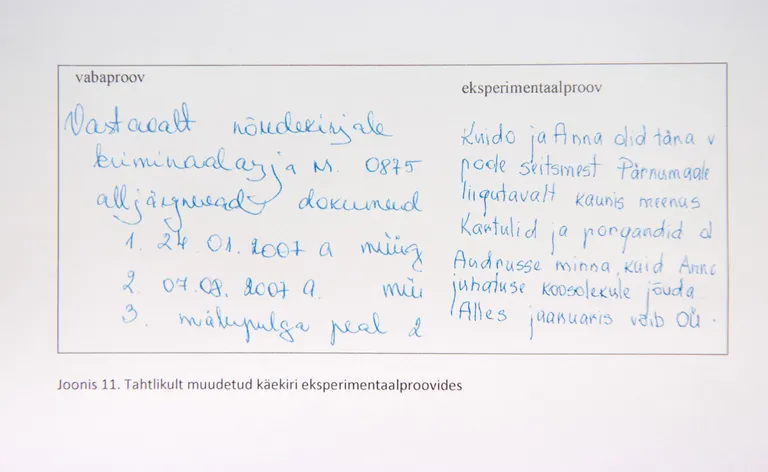 vabaproov
Vastavalt nõudekirjale
kriminaalasja nr. 0875
alljärgnevad dokumend
1. 24.01.2007 a müüg
2. 07.08.2007 a. müü
3. mälupulga peal 2
eksperimentaalproov
Kuido ja Anna olid täna v
poole seitsmest Pärnumaale
liigutavalt kaunis meenus
Kartulid ja porgandid d
Audrusse minna, kuid Anna
juhatuse koosolekule jõuda
Alles jaanuaris võib OÜ
Joonis 11. Tahtlikult muudetud käekiri eksperimentaalproovides